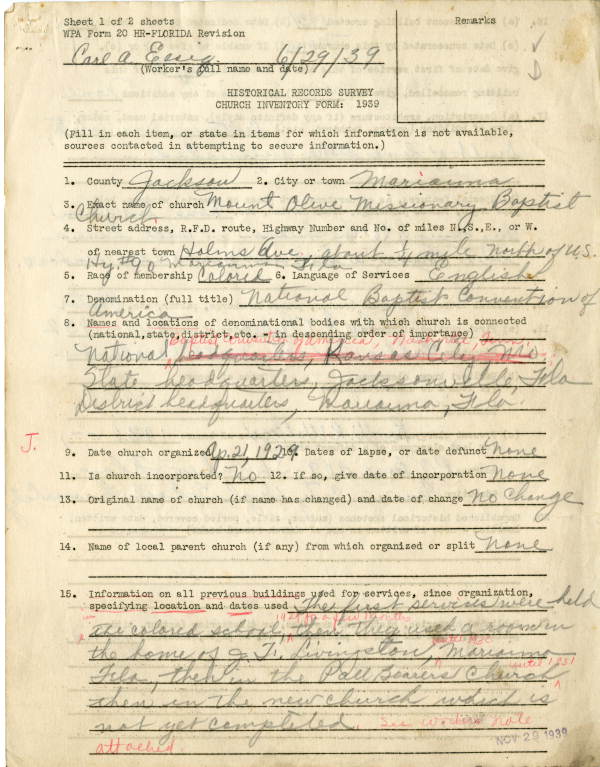 Sheet 1 of 2 sheets
WPA Form 20 HR-FLORIDA Revision
Remarks
Carl A. Essig 6/29/39
(Worker's full name and date)
HISTORICAL RECORDS SURVEY
CHURCH INVENTORY FORM: 1939
(Fill in each item, or state in items for which information is not available,
sources contacted in attempting to secure information.)
1. County Jackson 2. City or town Marianna
3. Exact name of church Mount Olive Missionary Baptist
Church
4. Street address, R.F.D. route, Highway Number and No. of miles N., S., E., or W.
of nearest town Holms Ave, about ¼ mile North of U.S.
Hy. #90 Marianna Fla
5. Race of membership Colored 6. Language of Services English
7. Denomination (full title) National Baptist Convention of
America
8. Names and locations of denominational bodies with which church is connected
(national, state, district, etc. - in descending order of importance)
Baptist Convention of America, Nashville, Tenn.
National headquarters, Kansas City, Mo
State headquarters, Jacksonville, Fla
District headquarters, Marianna, Fla.
J.
9. Date church organized Ap. 21, 1929. Dates of lapse, or date defunct None
11. Is church incorporated? No 12. If so, give date of incorporation None
13. Original name of church (if name has changed) and date of change No Change
14. Name of local parent church (if any) from which organized or split None
15. Information on all previous buildings used for services, since organization,
specifying location and dates used The first services were held
1929 for a few months
at colored school, then they used a room in
the home of J. T. Livingston, Marianna
until 1931
Fla, then in the Pall Bearers Church
then in the new church which is
not yet completed. See workers note
attached
NOV 29 1939